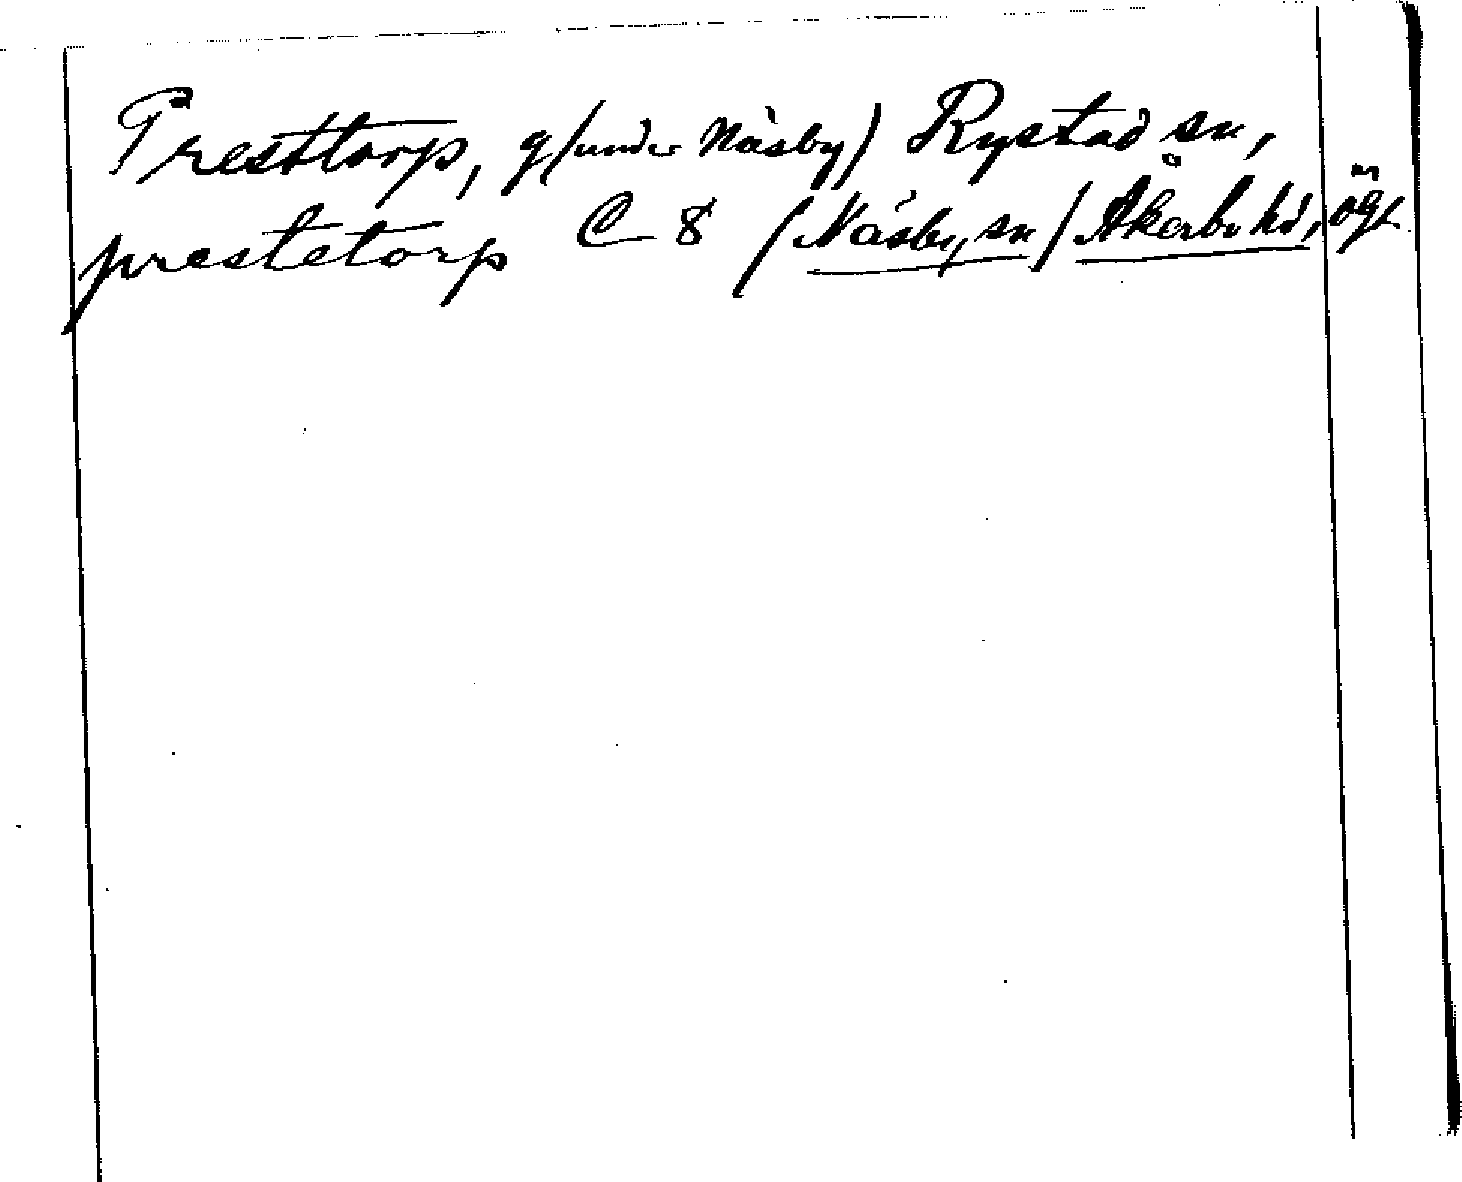 Presttorp, g/under Näsby) Rystad sn,
prestetorp C 8 /Näsby sn/ Åkerbo hd, ögl